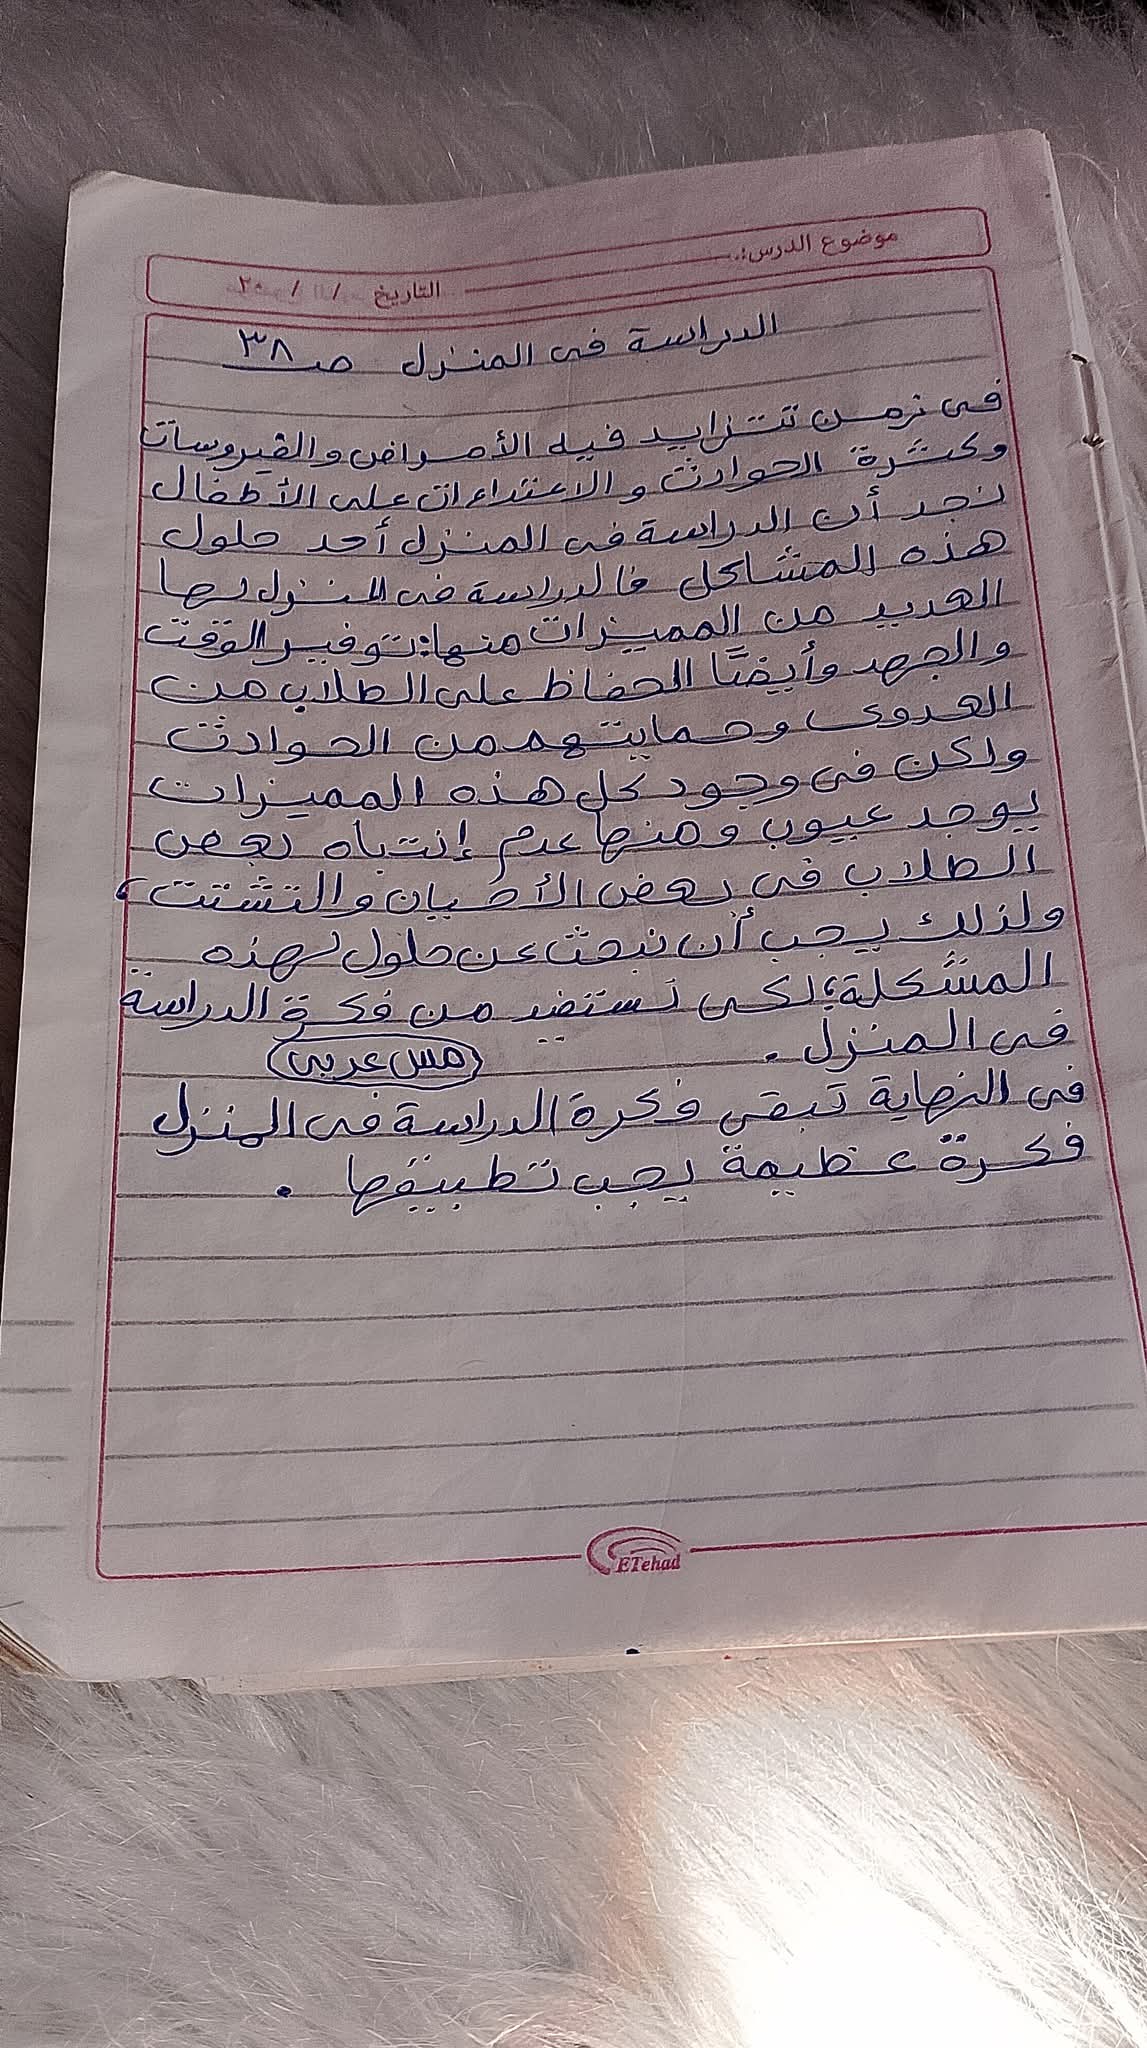 موضوع الدرس:
التاريخ / / ٢٠
الدراسة فى المنزل صـ ٣٨
فى زمن تتزايد فيه الأمراض والفيروسات
وكثرة الحوادث والاعتداءات على الأطفال
نجد أن الدراسة فى المنزل أحد حلول
هذه المشاكل فالدراسة فى المنزل لها
العديد من المميزات منها: توفير الوقت
والجهد وأيضًا الحفاظ على الطلاب من
العدوى وحمايتهم من الحوادث
ولكن فى وجود كل هذه المميزات
يوجد عيوب ومنها عدم إنتباه بعض
الطلاب فى بعض الأحيان والتشتت،
ولذلك يجب أن نبحث عن حلول لهذه
المشكلة؛ لكى نستفيد من فكرة الدراسة
فى المنزل .
مس عربى
فى النهاية تبقى فكرة الدراسة فى المنزل
فكرة عظيمة يجب تطبيقها .
ETehad